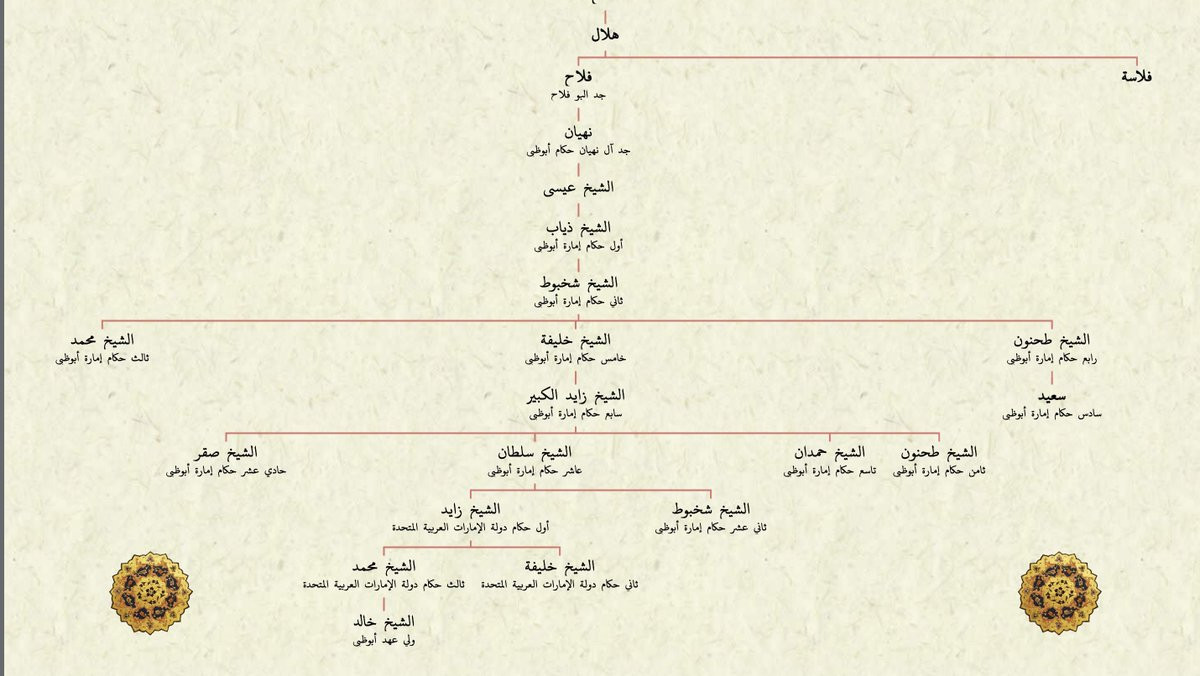 هلال
فلاسة
فلاح
جد البو فلاح
نهيان
جد آل نهيان حكام أبوظبى
الشيخ عيسى
الشيخ ذياب
أول حكام إمارة أبوظبى
الشيخ شخبوط
ثاني حكام إمارة أبوظبى
الشيخ طحنون
رابع حكام إمارة أبوظبى
الشيخ خليفة
خامس حكام إمارة أبوظبى
الشيخ محمد
ثالث حكام إمارة أبوظبى
سعيد
سادس حكام إمارة أبوظبى
الشيخ زايد الكبير
سابع حكام إمارة أبوظبى
الشيخ طحنون
ثامن حكام إمارة أبوظبى
الشيخ حمدان
تاسع حكام إمارة أبوظبى
الشيخ سلطان
عاشر حكام إمارة أبوظبى
الشيخ صقر
حادي عشر حكام إمارة أبوظبى
الشيخ شخبوط
ثاني عشر حكام إمارة أبوظبى
الشيخ زايد
أول حكام دولة الإمارات العربية المتحدة
الشيخ خليفة
ثاني حكام دولة الإمارات العربية المتحدة
الشيخ محمد
ثالث حكام دولة الإمارات العربية المتحدة
الشيخ خالد
ولي عهد أبوظبى